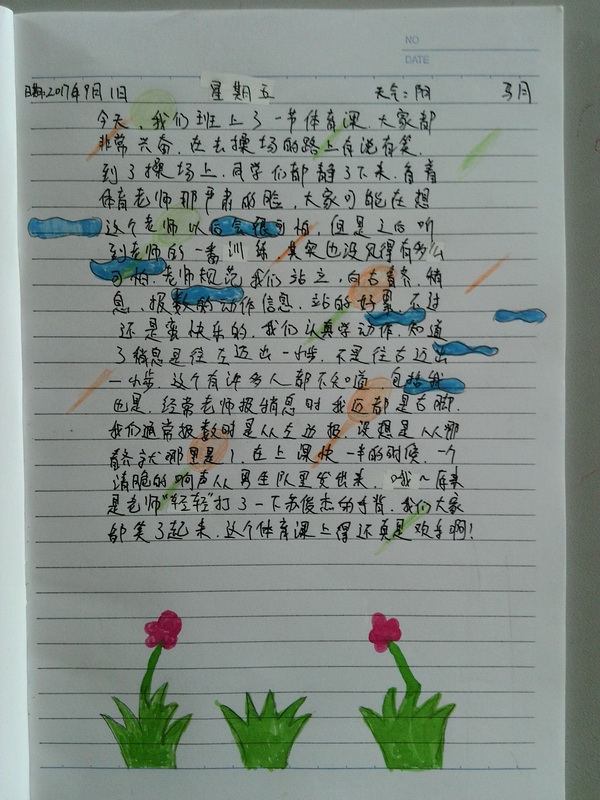 NO
DATE
日期:2017年9月1日 星期五 天气:阴
今天,我们班上了一节体育课.大家都
非常兴奋,在去操场的路上有说有笑.
到了操场上,同学们都静了下来.看着
体育老师那严肃的脸,大家可能在想
这个老师以后会很可怕,但是之后听
到老师的一番训练,其实也没见得有多么
可怕.老师规范我们站立,向右看齐,稍
息,报数的动作信息.站的好累,不过
还是蛮快乐的.我们认真学动作.知道
了稍息是往左迈出一小步,不是往右迈出
一小步.这个有许多人都不知道,包括我
也是.经常老师报稍息时我迈都是右脚.
我们通常报数时是从左边报没想是从哪
看齐就哪里是1.在上课快一半的时候,一个
清脆的响声从男生队里发出来.哦~原来
是老师"轻轻"打了一下苏俊杰的手背.我们大家
都笑了起来.这个体育课上得还真是欢乐啊!